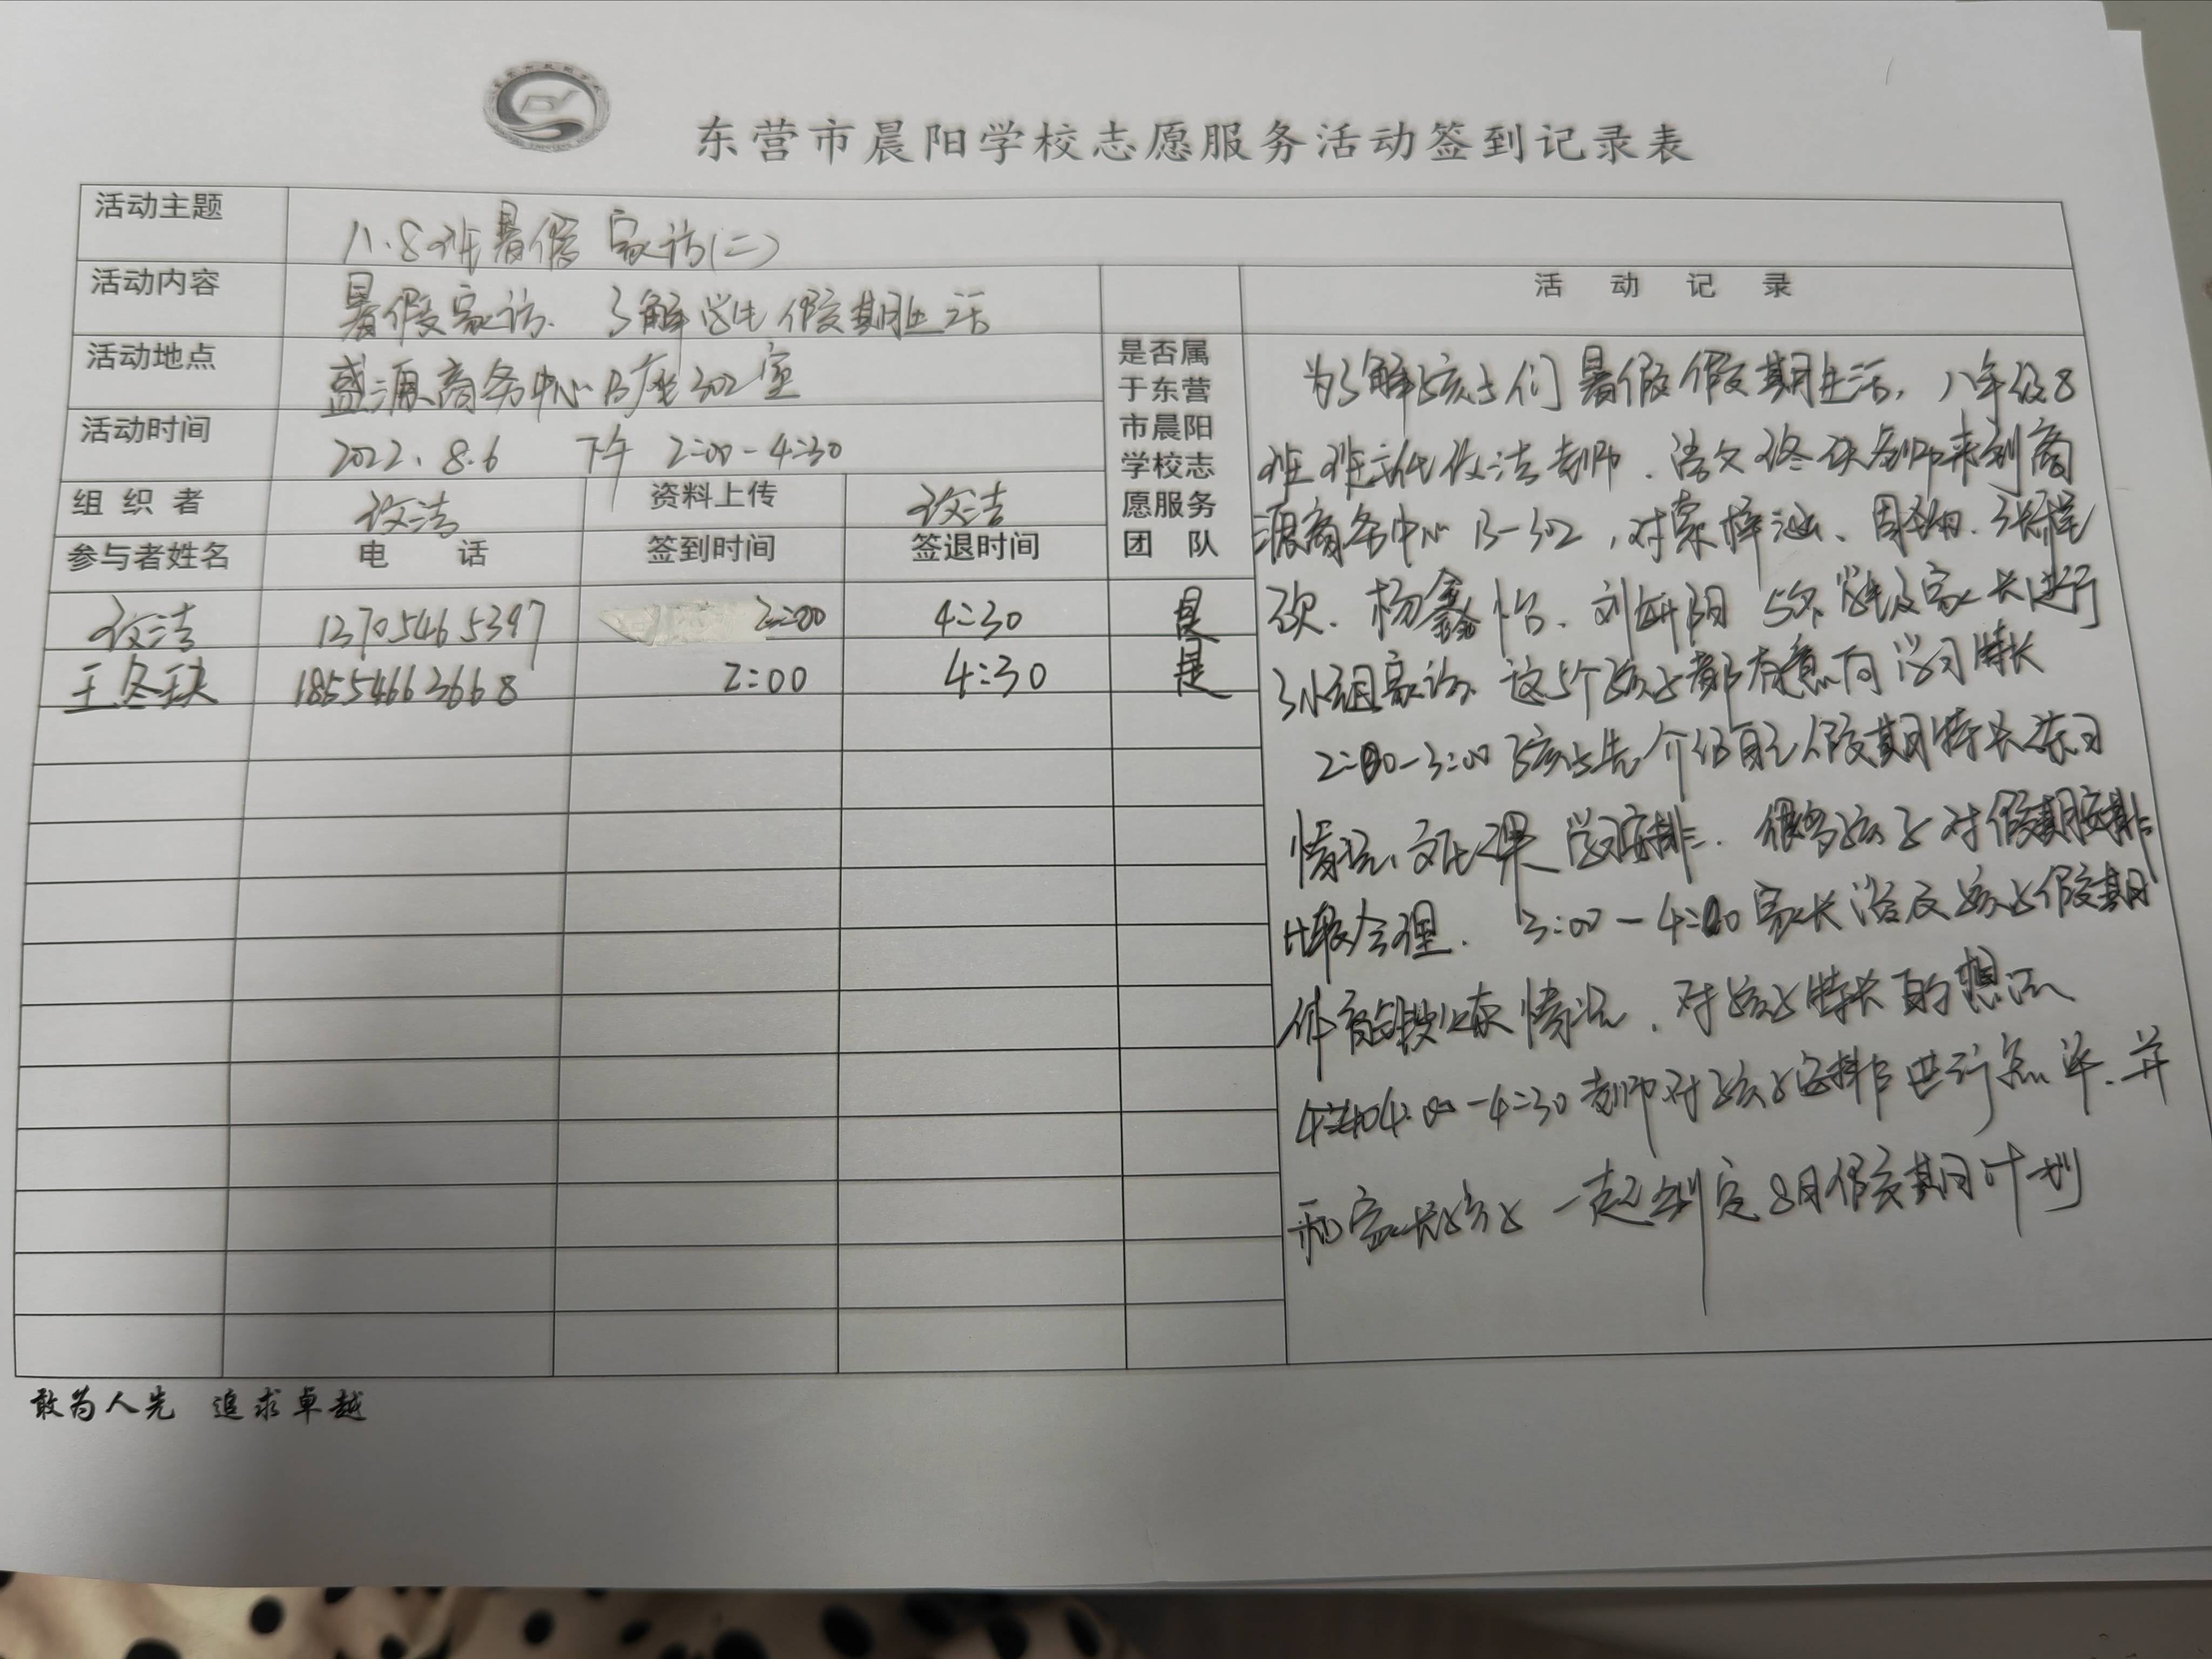 东营市晨阳学校志愿服务活动签到记录表
活动主题 八.8班暑假家访(二)
活动内容 暑假家访、了解学生假期生活
活动地点 盛源商务中心B座302室
活动时间 2022.8.6 下午 2:00-4:30
组织者 资料上传
参与者姓名 电话 签到时间 签退时间
是否属
于东营
市晨阳
学校志
愿服务
团队
13705465397 2:00 4:30 是
王冬玦 18554663668 2:00 4:30 是
活动记录
为了解孩子们暑假假期生活，八年级8
班班主任 老师、语文 老师来到商
源商务中心B-302，对 梓 、周 、张梓
、杨鑫怡、刘 阳 5名学生及家长进行
了小组家访、这5个孩子都有意向学习特长
2:00-3:00孩子先介绍自己假期特长练习
情况、文化课学习安排、很多孩子对假期安排
比较合理. 3:00-4:00家长谈及孩子假期
体育锻炼情况、对孩子特长的想法
4:00-4:30老师对孩子安排进行点评、并
和家长孩子一起制定8月假期计划
敢为人先 追求卓越